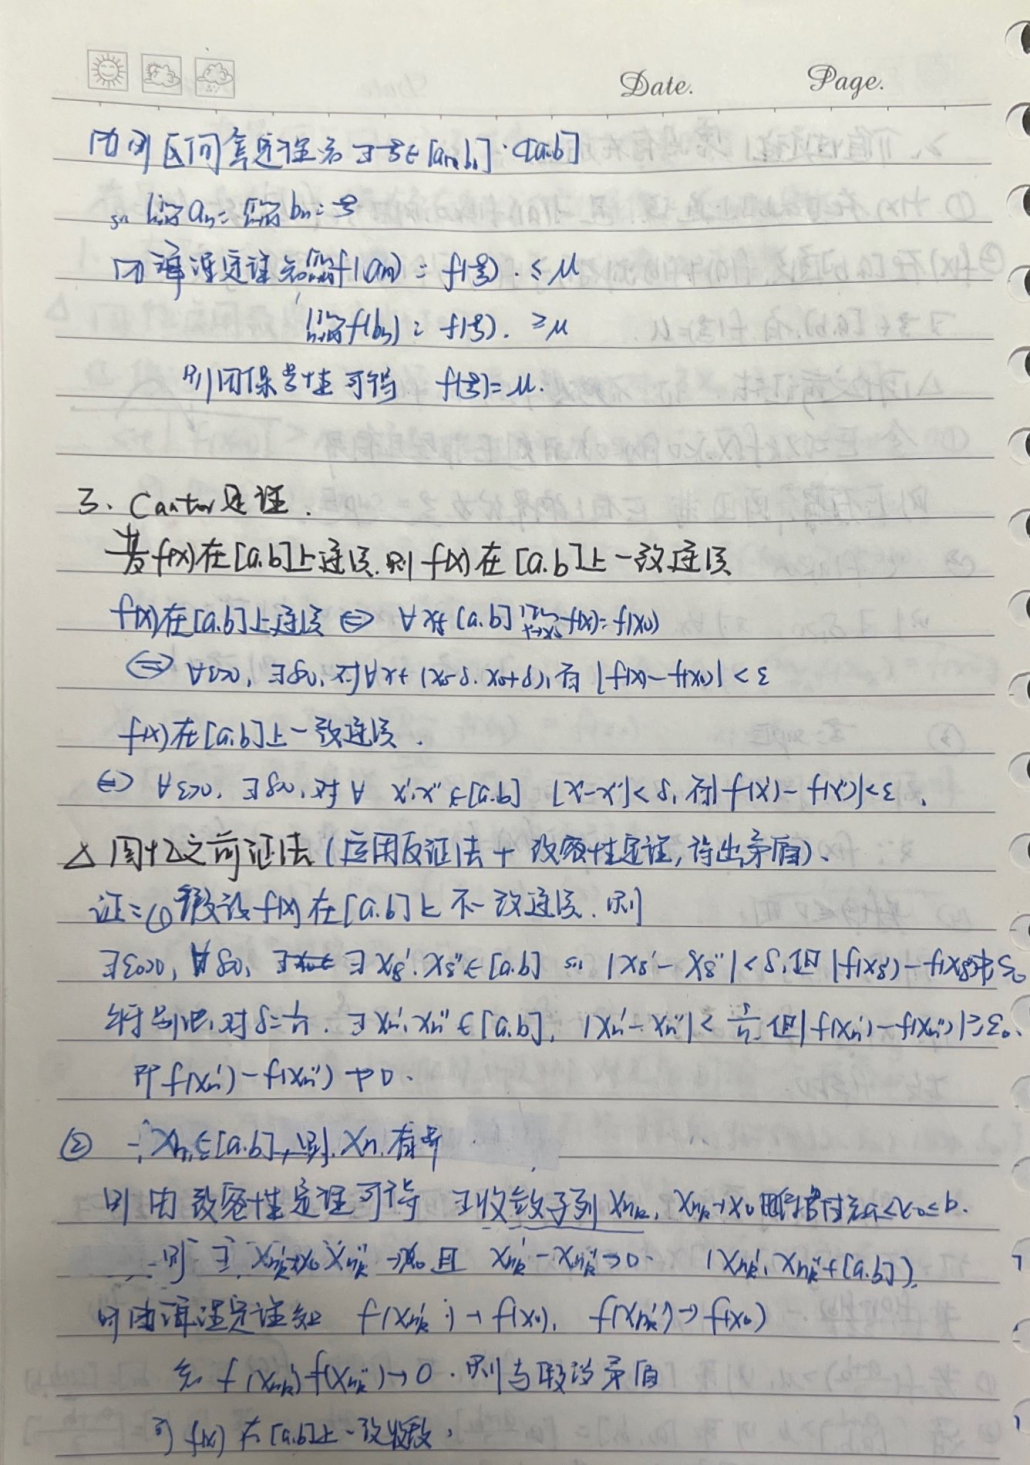 Date. Page.
由闭区间套定理知 ∃ ξ∈[an,bn]⊂[a,b]
st lim an = lim bn = ξ
由海涅定理知 lim f(an) = f(ξ) . ≤ μ
lim n→∞ f(bn) = f(ξ). ≥μ
则由保号性可得 f(ξ)=μ.
3. Cantor定理.
若f(x)在[a.b]上连续,则 f(x)在[a.b]上一致连续
f(x)在[a.b]上连续 ⇔ ∀x0∈[a.b] lim x→x0 f(x)=f(x0)
⇔ ∀ε>0, ∃δ>0, 对∀x∈(x0-δ. x0+δ), 有 |f(x)-f(x0)|<ε
f(x)在[a.b]上一致连续.
⇔ ∀ε>0, ∃δ>0, 对∀ x'.x''∈[a.b] |x'-x''|<δ, 有|f(x')-f(x'')|<ε.
△ 回忆之前证法(应用反证法+致密性定理,得出矛盾).
证:① 假设f(x)在[a.b]上不一致连续.则
∃ε0>0, ∀δ>0, ∃ xδ'.xδ''∈[a.b] st |xδ'-xδ''|<δ,但|f(xδ')-f(xδ'')|≥ε0
特别地,对δ=1/n. ∃ xn',xn''∈[a.b], |xn'-xn''|<1/n, 但|f(xn')-f(xn'')|≥ε0.
即 f(xn')-f(xn'')↛0.
② ∵xn∈[a.b],则 xn 有界
则由致密性定理可得 ∃收敛子列 xnk, xnk→x0 a≤x0≤b.
则 ∃ xnk'→x0 xnk''→x0 且 xnk'-xnk''→0. (xnk', xnk''∈[a.b]).
则由海涅定理知 f(xnk')→f(x0), f(xnk'')→f(x0)
知 f(xnk')-f(xnk'')→0.则与假设矛盾
f(x)在[a.b]上一致